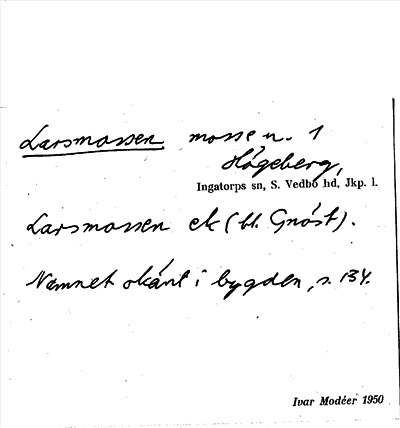 Larsmossen mosse n. 1
Högeberg,
Ingatorps sn, S. Vedbo hd, Jkp. l.
Larsmossen ek (bl. Gnöst).
Namnet okänt i bygden, s. 134.
Ivar Modéer 1950